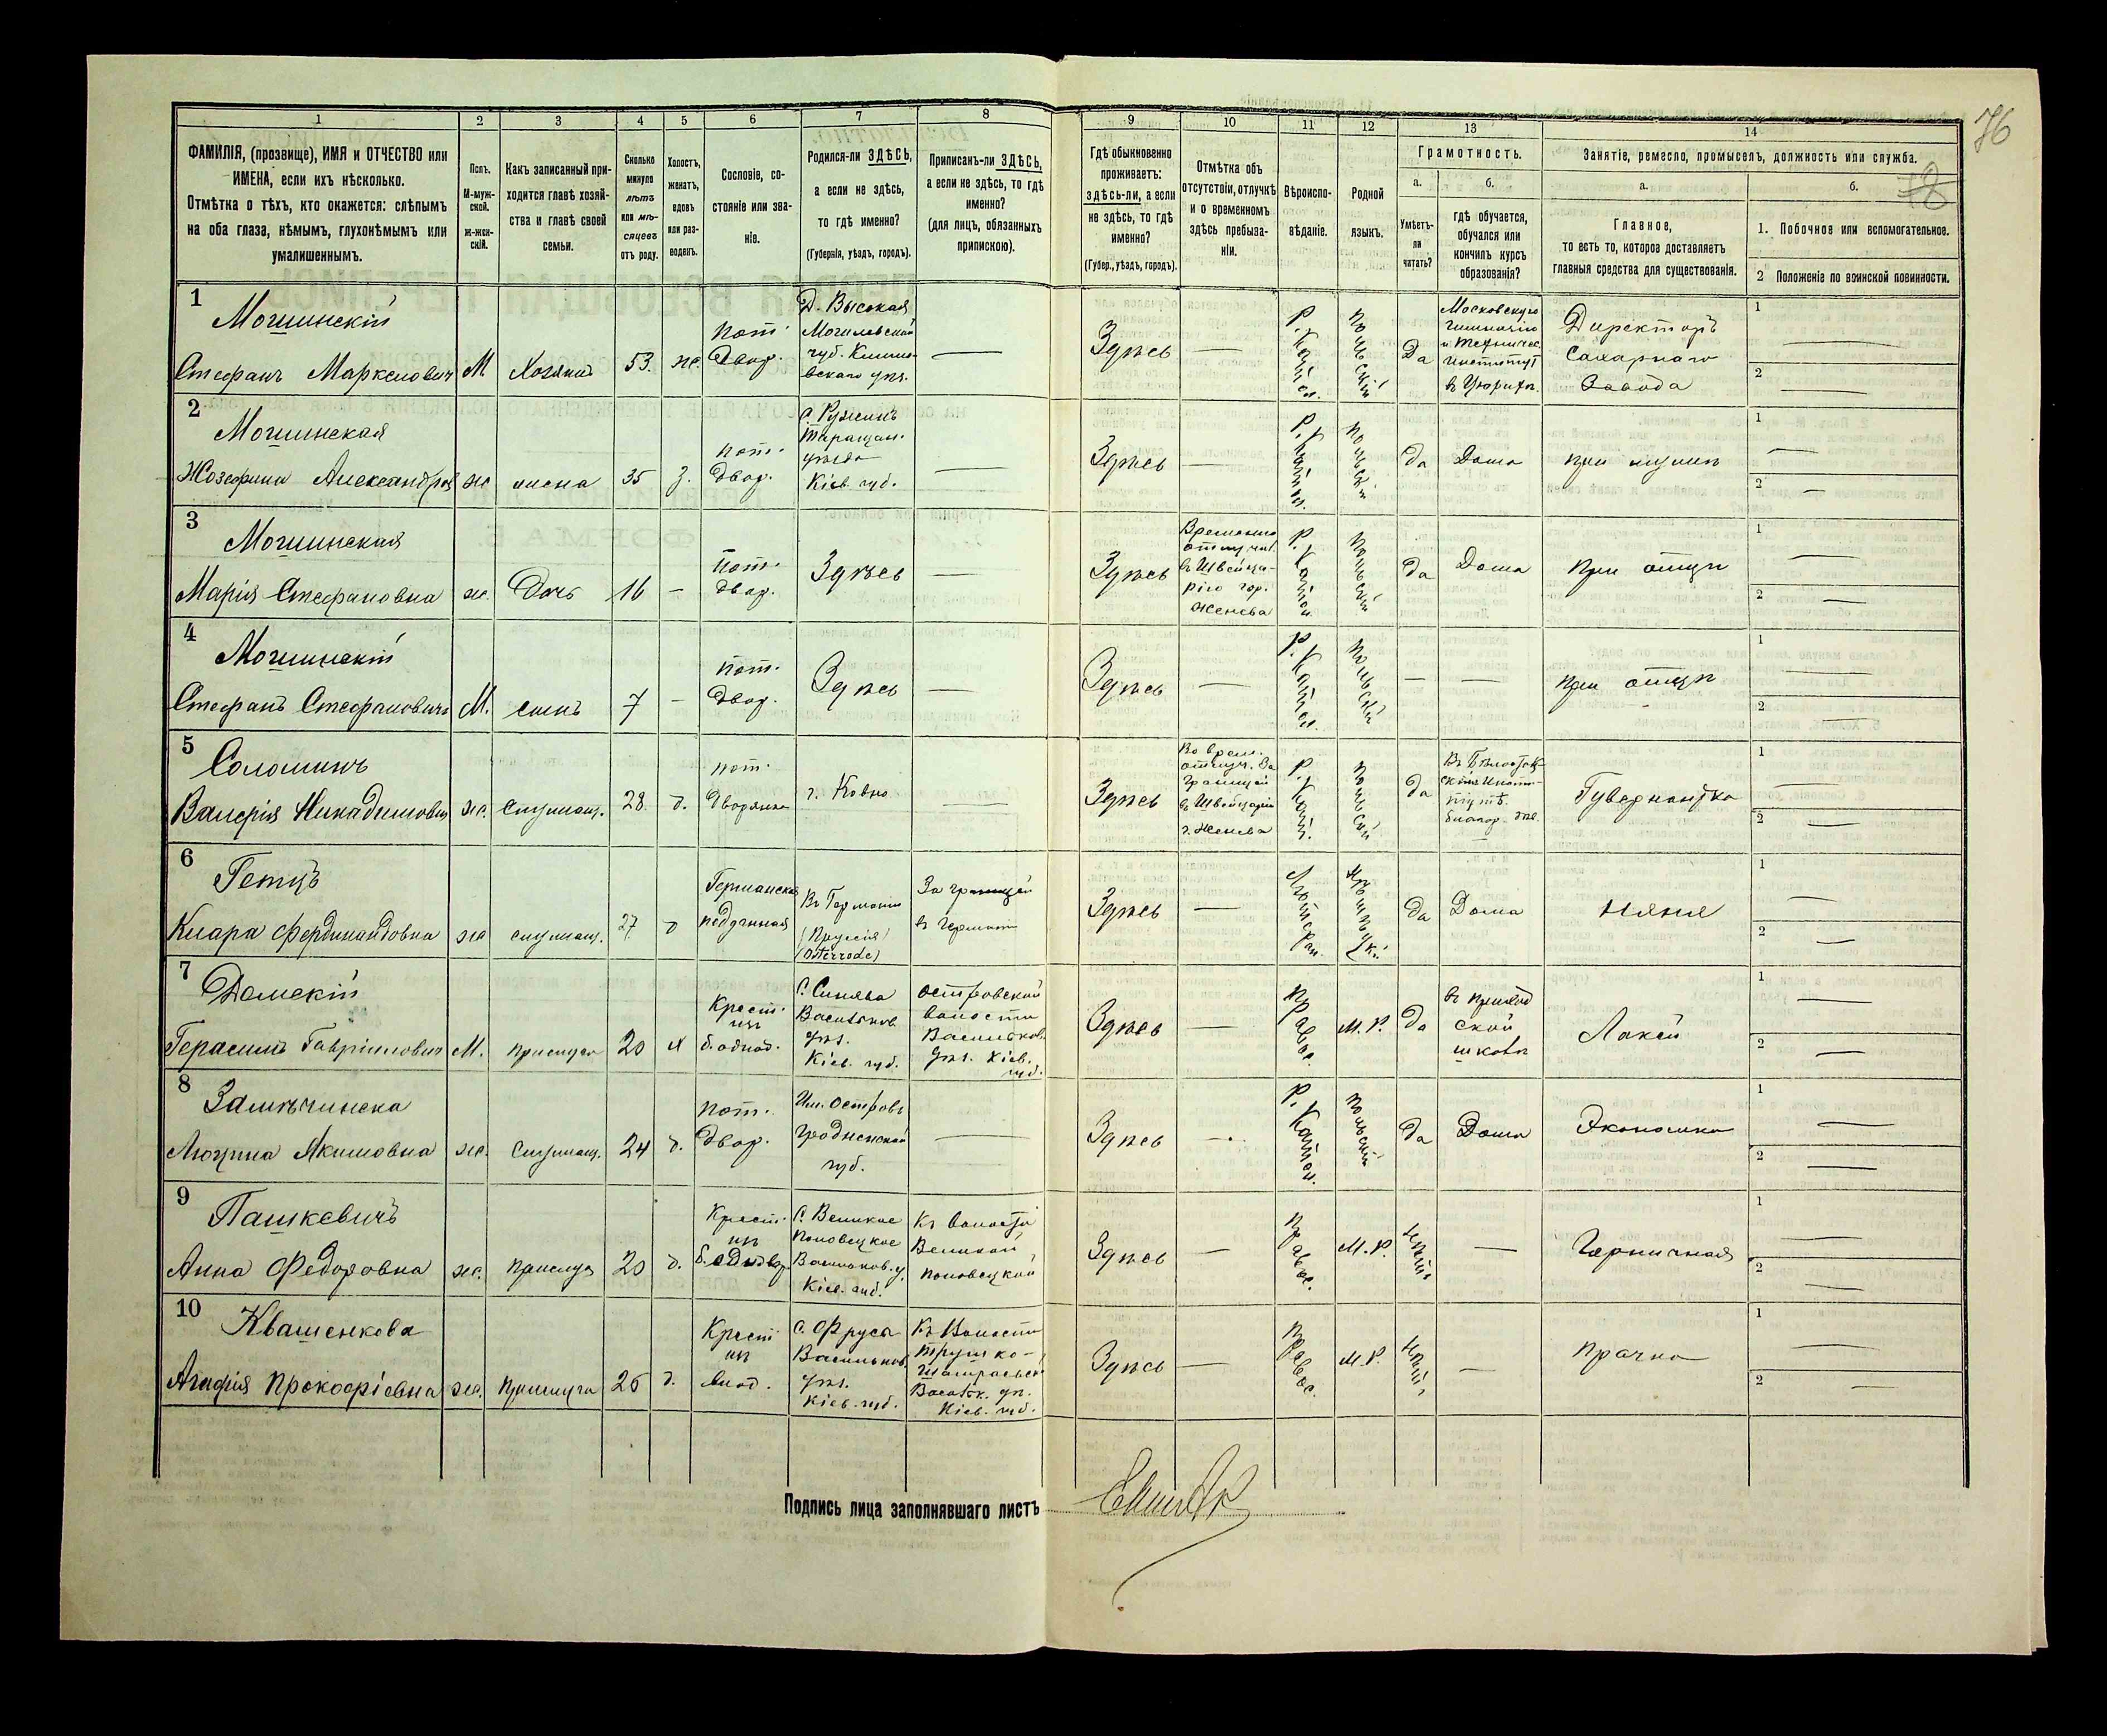 76
18
1 2 3 4 5 6 7 8 9 10 11 12 13 14
ФАМИЛІЯ, (прозвище), ИМЯ и ОТЧЕСТВО или
ИМЕНА, если ихъ нѣсколько.
Отмѣтка о тѣхъ, кто окажется: слѣпымъ
на оба глаза, нѣмымъ, глухонѣмымъ или
умалишеннымъ.
Полъ.
М-муж-
ской.
ж-жен-
скій.
Какъ записанный при-
ходится главѣ хозяй-
ства и главѣ своей
семьи.
Сколько
минуло
лѣтъ
или мѣ-
сяцевъ
отъ роду.
Холостъ,
женатъ,
вдовъ
или раз-
веденъ.
Сословіе, со-
стояніе или зва-
ніе.
Родился-ли ЗДѢСЬ,
а если не здѣсь,
то гдѣ именно?
(Губернія, уѣздъ, городъ).
Приписанъ-ли ЗДѢСЬ,
а если не здѣсь, то гдѣ
именно?
(для лицъ, обязанныхъ
припискою).
Гдѣ обыкновенно
проживаетъ:
здѣсь-ли, а если
не здѣсь, то гдѣ
именно?
(Губер., уѣздъ, городъ).
Отмѣтка объ
отсутствіи, отлучкѣ
и о временномъ
здѣсь пребыва-
ніи.
Вѣроиспо-
вѣданіе.
Родной
языкъ.
Грамотность.
а.
Умѣетъ-
ли
читать?
б.
гдѣ обучается,
обучался или
кончилъ курсъ
образованія?
Занятіе, ремесло, промыселъ, должность или служба.
а.
Главное,
то есть то, которое доставляетъ
главныя средства для существованія.
б.
1. Побочное или вспомогательное.
2 Положеніе по воинской повинности.
1
Могшинскій
Стефанъ Маркеловичъ
М
Хозяинъ
53.
ж.
пот.
двор.
Д. Высокая
Могилевской
губ. Климо-
вскаго уѣз.
Здѣсь
Р.
Катол.
Польскій
Да
Московскую
гимназію
и Техничес.
институт
въ Цюрихѣ.
Директоръ
Сахарнаго
Завода
1
2
2
Могшинская
Жозефина Александров
ж
жена
35
з.
пот.
двор.
С. Ружинъ
Таращан.
уѣзда
Кіев. губ.
Здѣсь
Р.
Катол.
Польскій
да
Дома
при мужѣ
1
2
3
Могшинская
Марія Стефановна
ж.
Дочь
16
пот.
двор.
Здѣсь
Здѣсь
Временно
отлуч.
въ Швейца-
рію гор.
Женева
Р.
Катол.
Польскій
да
Дома
при отцѣ
1
2
4
Могшинскій
Стефанъ Стефановичъ
М.
сынъ
7
пот.
двор.
Здѣсь
Здѣсь
Р.
Катол.
Польскій
при отцѣ
1
2
5
Соломинъ
Валерія Никадимовна
ж.
Служащ.
28.
д.
пот.
дворянка
г. Ковно
Здѣсь
Во врем.
отлуч. За
границей
въ Швейцаріи
г. Женева
Р.
Катол.
Польскій
да
Въ Бѣлосток
скомъ Инсти-
тутѣ
Гувернантка
1
2
6
Гетцъ
Клара Фердинандовна
ж
служащ.
27
д
Германская
подданная
Въ Германіи
(Пруссія)
(Osterrode)
За границей
въ Германіи
Здѣсь
Лютеран.
Нѣмецкій
да
Дома
няня
1
2
7
Домскій
Герасимъ Гавріиловичъ
М.
прислуга
20
х
Крест.
изъ
б. однод.
С. Синява
Васильков
уѣз.
Кіев. губ.
Островской
волости
Васильков.
уѣз. Кіев.
губ.
Здѣсь
Правос.
М. Р.
да
въ приход
ской
школѣ
Лакей
1
2
8
Замечинска
Люцина Якимовна
ж.
Служащ.
24
д.
пот.
двор.
Им. Островъ
Гродненской
губ.
Здѣсь
Р.
Катол.
Польскій
да
Дома
Экономка
1
2
9
Пашкевичъ
Анна Федоровна
ж.
прислуга
20
д.
Крест.
изъ
б. однодвор.
С. Великое
Половецкое
Васильков. у.
Кіев. губ.
Къ волости
Великой
Половецкой
Здѣсь
Правос.
М. Р.
нѣтъ
Горничная
1
2
10
Квашенкова
Агафія Прокофіевна
ж.
прислуга
26
д.
Крест
изъ
однод.
С.
Васильков.
уѣз.
Кіев. губ.
Къ Волости
Васильк. уѣ.
Кіев. губ.
Здѣсь
Правос.
М. Р.
нѣтъ
прачка
1
2
Подпись лица заполнявшаго листъ